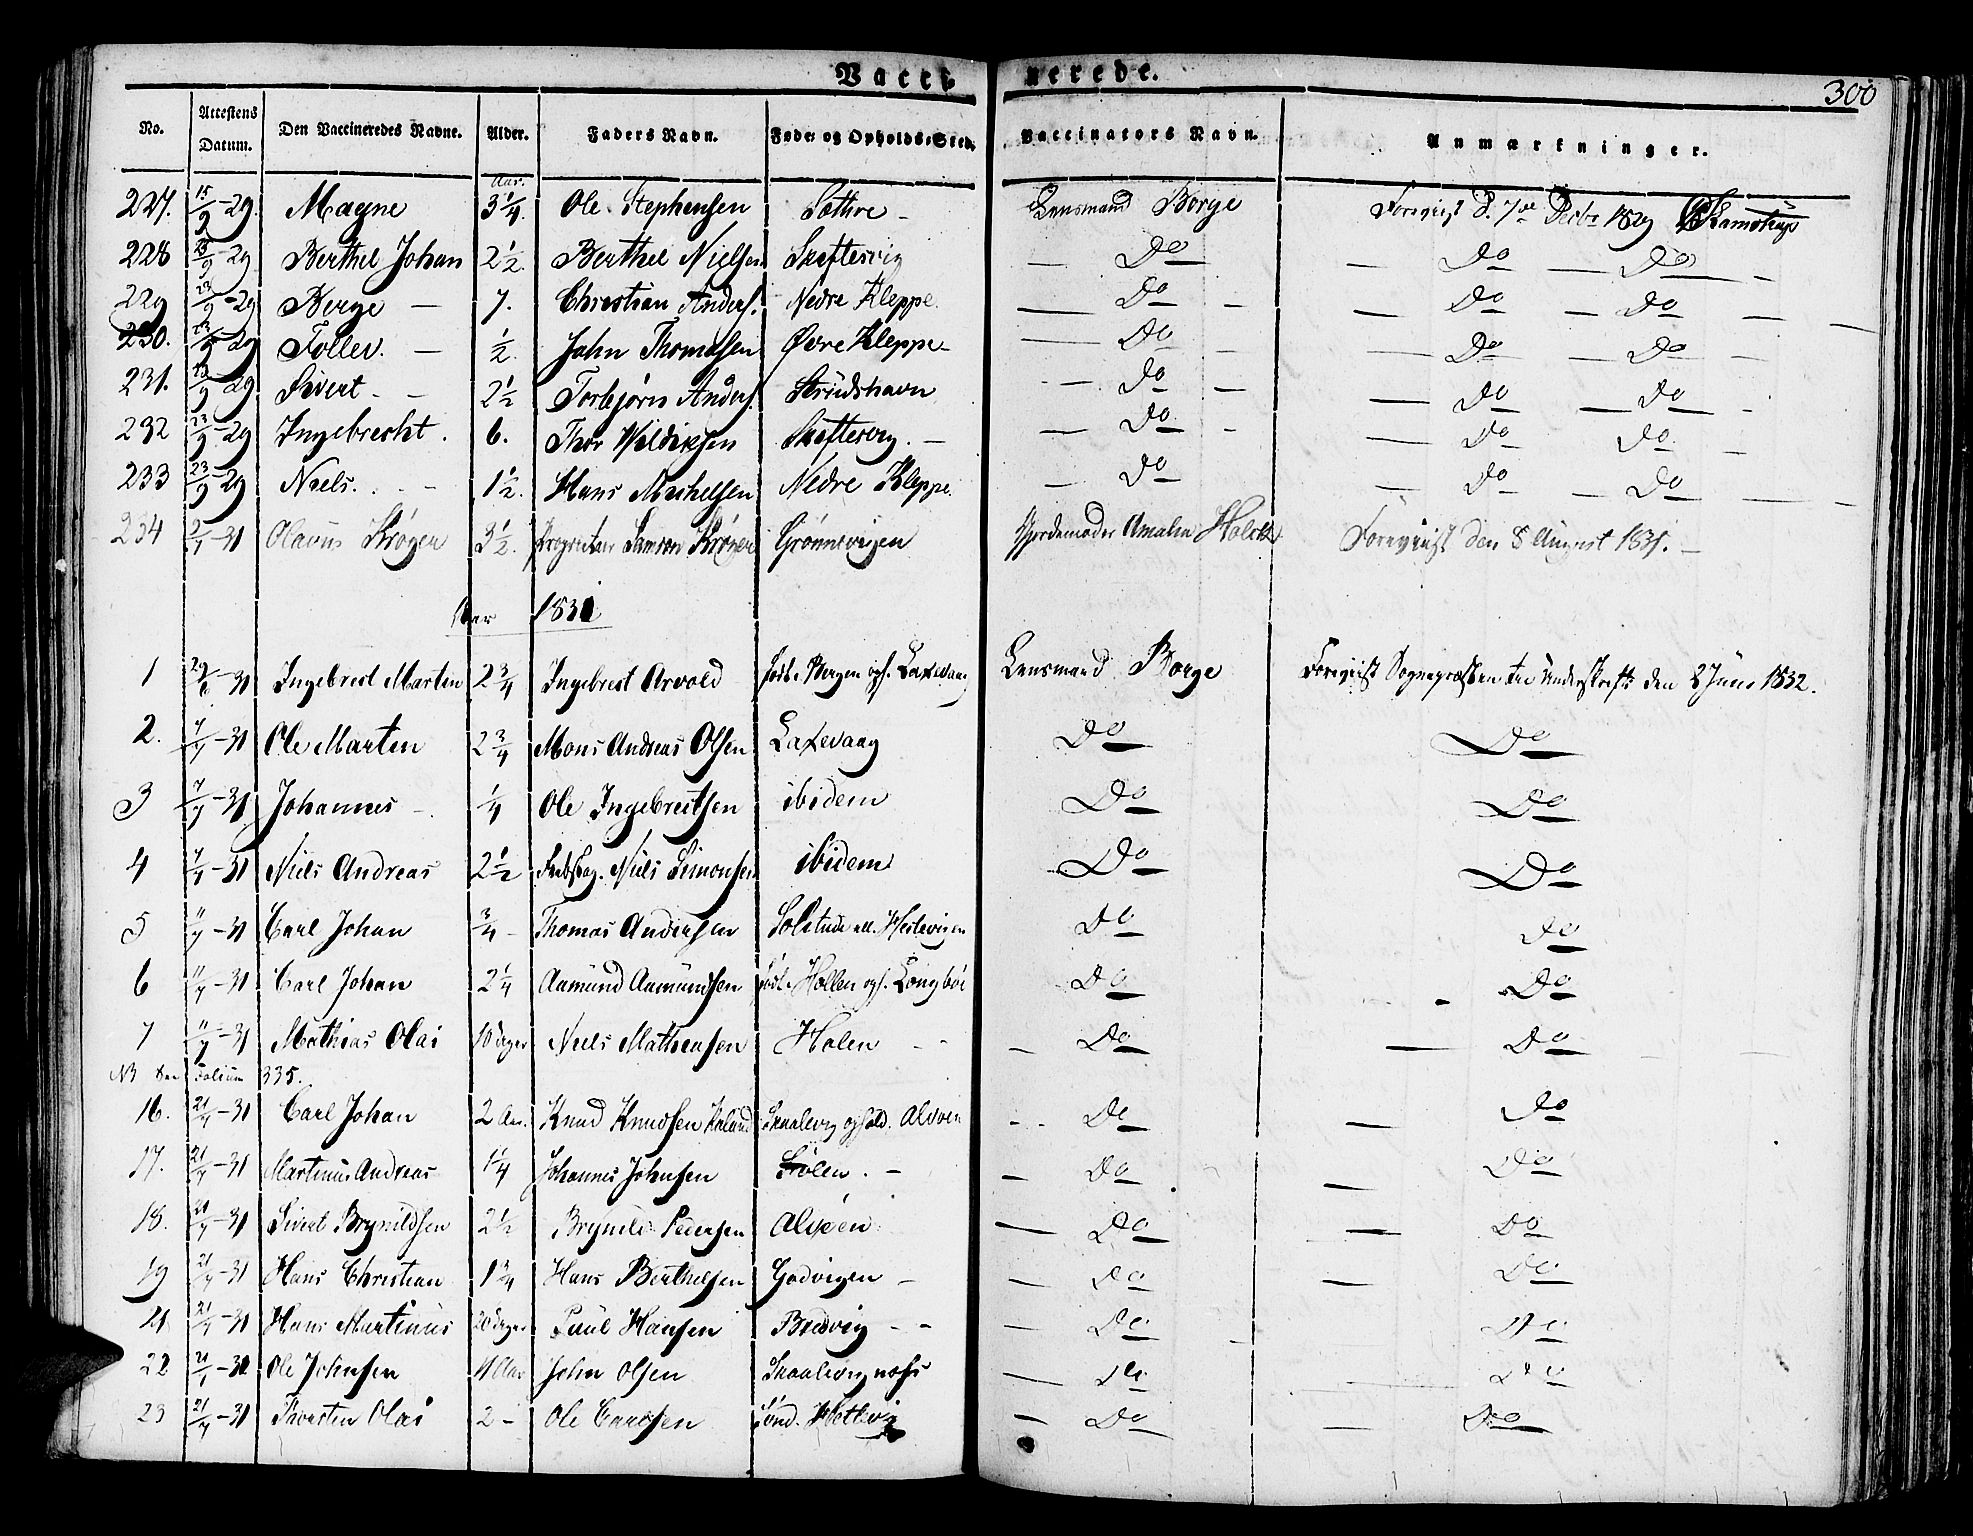 Vacci nerede. 300
No. Attestens Datum. Den Vaccineredes Navne. Alder. Faders Navn. Føde- og Opholds-Sted. Vaccinators Navn. Anmærkninger.
227. 15/9-29. Magne 3 1/4 Aar. Ole Stephensen Sothre - Lensmand Borge Foreviist d. 7de Decbr 1829 Kamstrup
228 23/9-29 Berthel Johan 2 1/2. Berthel Nielsen Skaftervig — Do — Do — Do —
229 23/9-29 Berge — 7. Christian Anders. Nedre Kleppe — Do — — Do — Do —
230. 23/9-29 Tollev. — 1/2. John Thomasen Øvre Kleppe — Do — — Do — Do —
231. 23/9-29. Sivert - - 2 1/2 Torbjørn Anders. Strudshavn — Do — — Do — Do -
232 23/9-29 Ingebrecht. 6. Thor Waldixsen Skaftevig. — — Do - — Do — Do -
233 23/9-29 Niels. . - 1 1/2. Hans Michelsen Nedre Kleppe. — Do — Do — Do —
234 5/7-31 Olavus Krøger 3 1/2. Proprietair Samson Krøger Grønnevigen Gjordemoder Amalia Holck Foreviist den 8 August 1831. —
Aar 1831
1 29/6-31 Ingebret Marten 2 3/4 Ingebret Arvold født i Bergen oph. Laxevaag Lensmand Borge Foreviist Sognepræsten til Underskrift den 2 Juni 1832.
2. 7/7-31 Ole Marten 2 3/4 Mons Andreas Olsen Laxevaag Do Do
3 7/7-31 Johannes - 1/4 Ole Ingebretsen ibidem Do Do
4 7/7-31 Niels Andreas 2 1/2 Niels Simonsen ibidem Do Do
5 11/7-31 Carl Johan 3/4 - Thomas Andersen Solitude ell. Hestevigen Do Do
6 11/7-31 Carl Johan 2 1/4 Aamund Aamundsen født i Hollen oph. Do - Do
7 11/7-31 Mathias Olai 10 dager Niels Mathiasen Holen - - — Do — Do
NB See Folium 335.
16. 21/7-31 Carl Johan 2 Aar. Knud Knudsen Skaalevig ophold. Alvøen - - Do — Do
17. 21/7-31 Martinus Andreas 1 1/4 Johannes Johnsen . - — Do — Do
18. 21/7-31 Sivert Brynildsen 2 1/2 Brynild Pedersen Alvøen — Do — Do
19 21/7-31 Hans Christian 1 3/4 Hans Berthelsen Godvigen — — Do — Do
21 21/7-31 Hans Martinus 20 dager Paul Hansen Bredvig - - — Do - Do
22 21/7-31 Ole Johnsen 4 Aar John Olsen Skaalevig næss — Do Do
23 21/7-31 Thorsten Olai 2 - Ole Carlsen — Do — Do